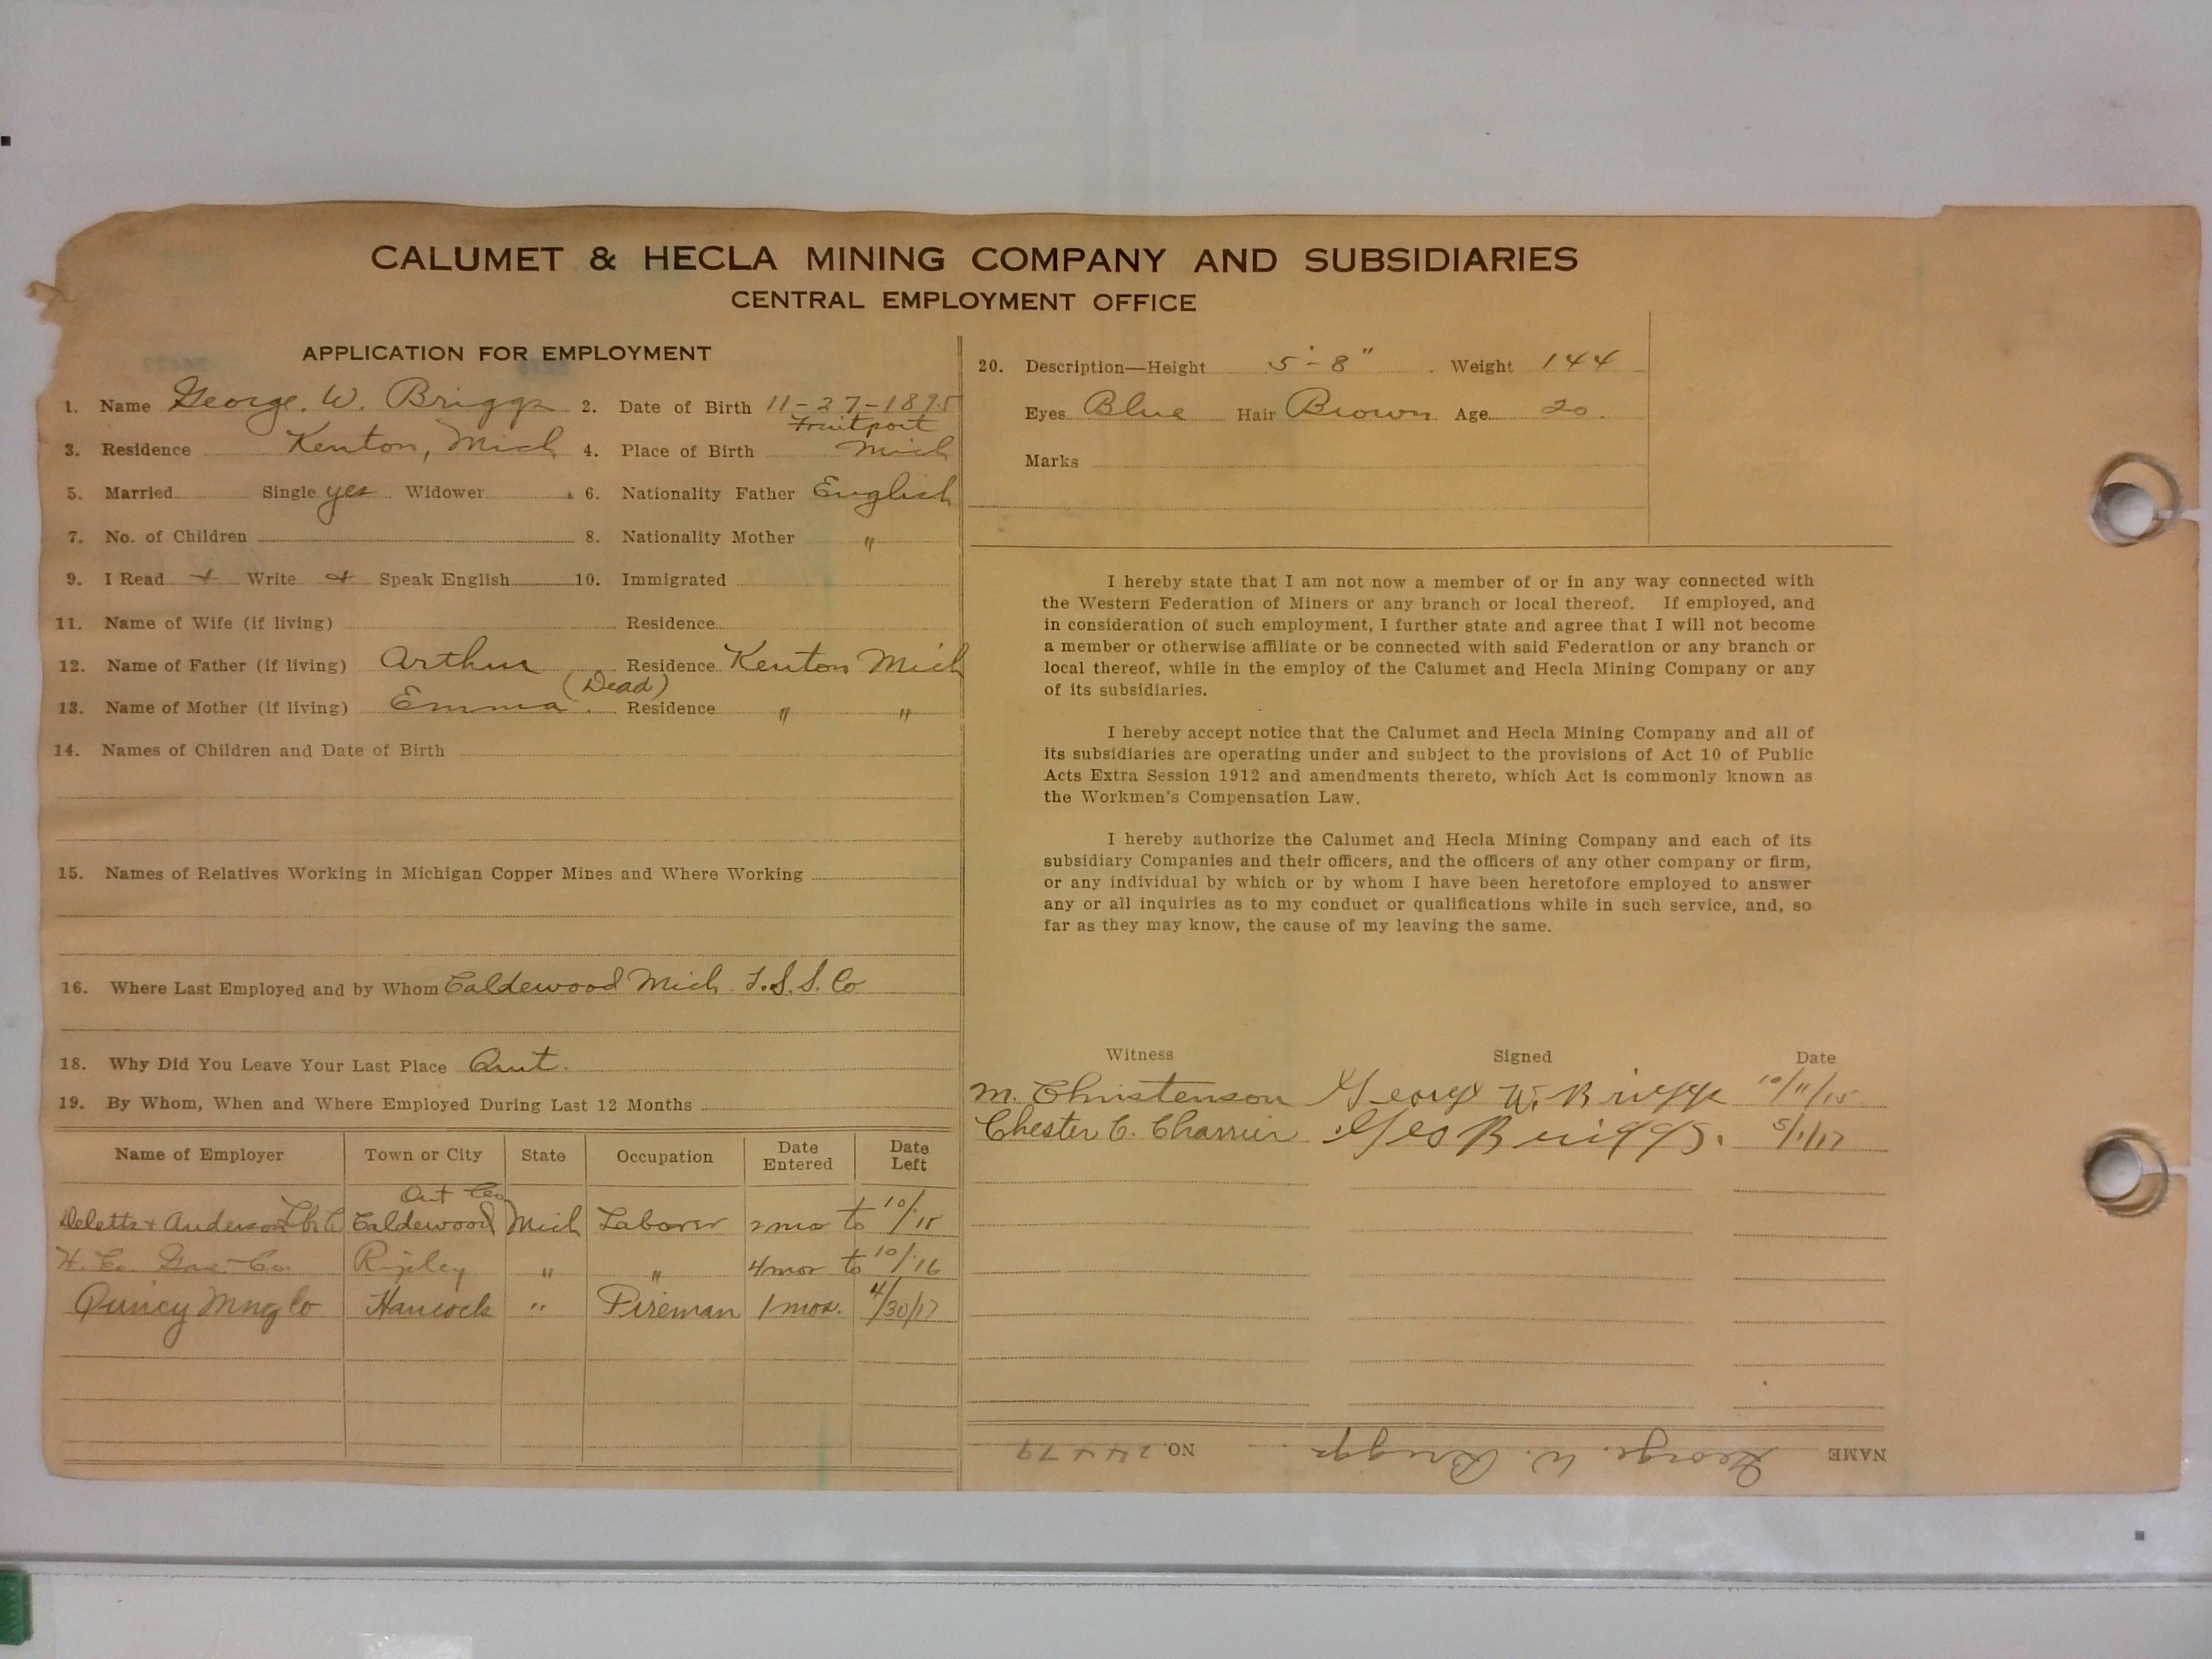 CALUMET & HECLA MINING COMPANY AND SUBSIDIARIES
CENTRAL EMPLOYMENT OFFICE
APPLICATION FOR EMPLOYMENT
1. Name George. W. Briggs 2. Date of Birth 11-27-1895
Fruitport
3. Residence Kenton, Mich 4. Place of Birth Mich
5. Married Single yes Widower 6. Nationality Father English
7. No. of Children 8. Nationality Mother "
9. I Read + Write + Speak English 10. Immigrated
11. Name of Wife (if living) Residence
12. Name of Father (if living) Arthur Residence Kenton Mich
(Dead)
13. Name of Mother (if living) Emma. Residence " "
14. Names of Children and Date of Birth
15. Names of Relatives Working in Michigan Copper Mines and Where Working
16. Where Last Employed and by Whom Caldewood Mich S. Co
18. Why Did You Leave Your Last Place Quit.
19. By Whom, When and Where Employed During Last 12 Months
Name of Employer Town or City State Occupation Date Entered Date Left
Ont Co.
& Anderson Caldewood Mich Laborer 2 mos to 10/15
H. Co. Gas Co. Ripley " " 4 mos to 10/16
Quincy Mng Co Hancock " Fireman 1 mos. 4/30/17
20. Description—Height 5'-8" Weight 144
Eyes Blue Hair Brown Age 20.
Marks
I hereby state that I am not now a member of or in any way connected with
the Western Federation of Miners or any branch or local thereof. If employed, and
in consideration of such employment, I further state and agree that I will not become
a member or otherwise affiliate or be connected with said Federation or any branch or
local thereof, while in the employ of the Calumet and Hecla Mining Company or any
of its subsidiaries.
I hereby accept notice that the Calumet and Hecla Mining Company and all of
its subsidiaries are operating under and subject to the provisions of Act 10 of Public
Acts Extra Session 1912 and amendments thereto, which Act is commonly known as
the Workmen's Compensation Law.
I hereby authorize the Calumet and Hecla Mining Company and each of its
subsidiary Companies and their officers, and the officers of any other company or firm,
or any individual by which or by whom I have been heretofore employed to answer
any or all inquiries as to my conduct or qualifications while in such service, and, so
far as they may know, the cause of my leaving the same.
Witness Signed Date
M. Christenson George W. Briggs 10/11/15
Chester C. Geo Briggs. 5/1/17
NAME George. W. Briggs NO. 24479